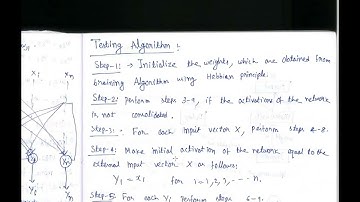 Testing Algorithm :
Step-1: → Initialize the weights, which are obtained from
training Algorithm using Hebbian principle.
Step-2: perform steps 3-9, if the activations of the network
is not consolidated.
Step-3: For each input vector X, perform steps 4-8.
Step-4: Make initial activation of the network equal to the
external input vector X as follows:
Yi = xi for i = 1, 2, 3, --- n.
Step-5: For each Yi perform steps 6-9.
X1 Xn
Y1 Yn